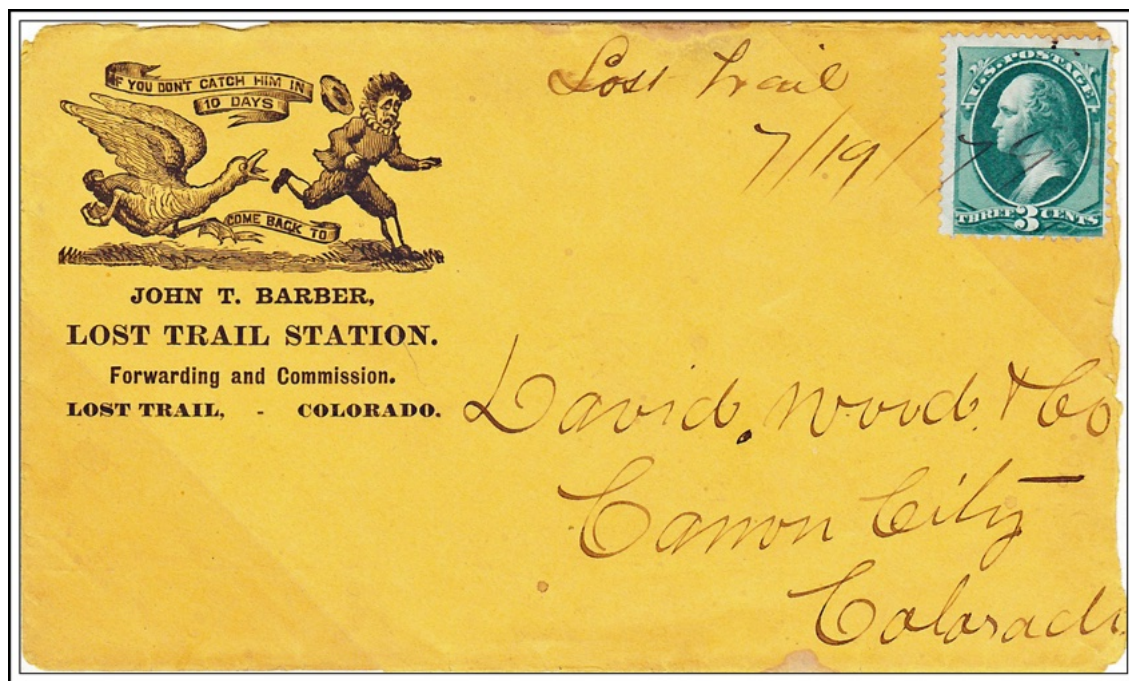 IF YOU DON'T CATCH HIM IN
10 DAYS
COME BACK TO
JOHN T. BARBER,
LOST TRAIL STATION.
Forwarding and Commission.
LOST TRAIL, - COLORADO.
Lost Trail
7/19/79
U.S. POSTAGE
THREE 3 CENTS
David Wood & Co
Canon City
Colorado